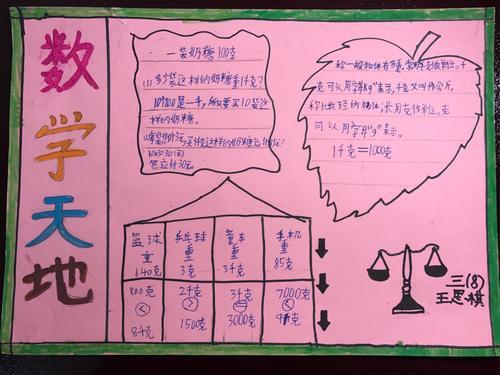 数学天地
一袋奶糖100克
(1)多少袋这样的奶糖重1千克?
10个100是一千,所以要买10袋这
样的奶糖。
10×3=30(元)
答应付30元。
称一般物体有多重,常用千克做单位。千
克可以用字母"kg"表示,千克又叫作公斤。
称比较轻的物体,常用克作单位。克
可以用字母"g"表示。
1千克=1000克
篮球重640克
乒乓球重3克
童车重3千克
手机重85克
800克 < 8千克
2千克 > 1500克
3千克 = 3000克
7000克 < 9千克
三(8)
王思棋